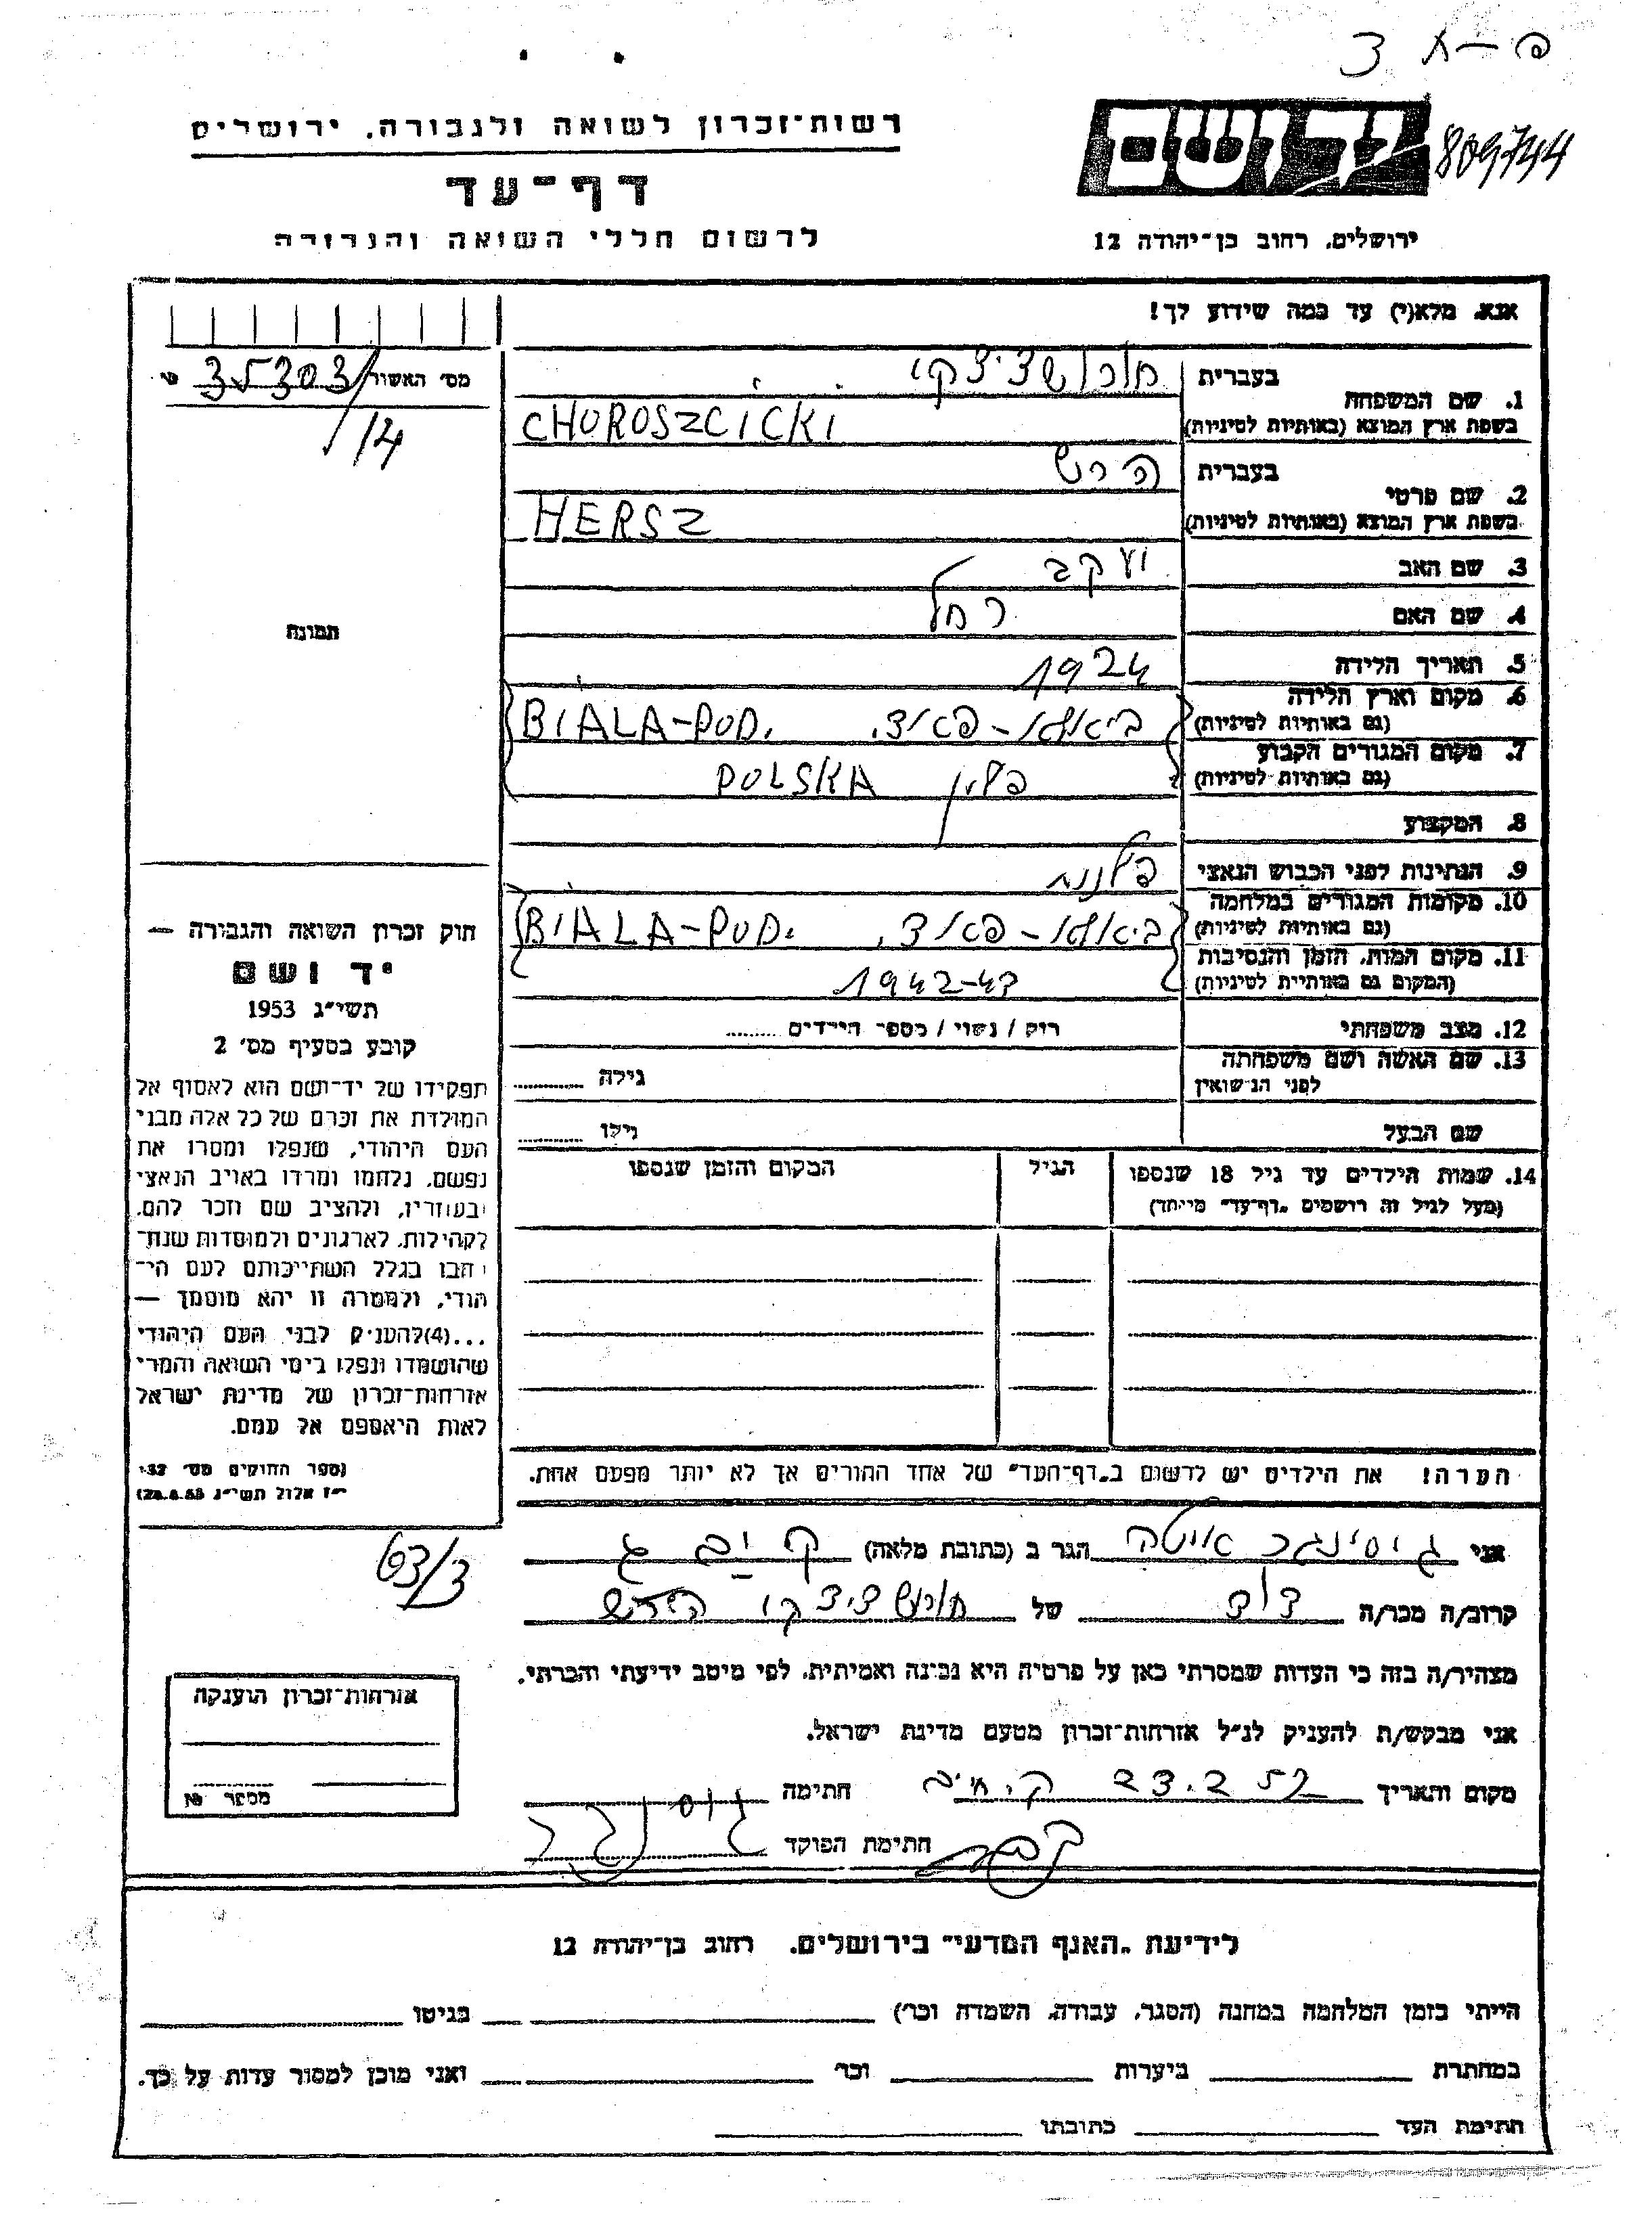 פ-א 3
יד ושם
809744
רשות-זכרון לשואה ולגבורה, ירושלים
דף-עד
לרשום חללי השואה והגבורה
ירושלים, רחוב בן-יהודה 12
אנא, מלא(י) עד כמה שידוע לך!
מס' האשור 35303
/14
1. שם המשפחה
בעברית חורושציצקי
בשפת ארץ המוצא (באותיות לטיניות) CHOROSZCICKI
2. שם פרטי
בעברית הרש
בשפת ארץ המוצא (באותיות לטיניות) HERSZ
3. שם האב יעקב
4. שם האם רחל
תמונה
5. תאריך הלידה 1924
6. מקום וארץ הלידה
(גם באותיות לטיניות) ביאלא-פאד. BIALA-POD.
7. מקום המגורים הקבוע
(גם באותיות לטיניות) פולין POLSKA
8. המקצוע
9. הנתינות לפני הכבוש הנאצי פולנית
10. מקומות המגורים במלחמה
(גם באותיות לטיניות) ביאלא-פאד. BIALA-POD.
11. מקום המות, הזמן והנסיבות
(המקום גם באותיות לטיניות) 1942-43
12. מצב משפחתי רוק / נשוי / מספר הילדים
13. שם האשה ושם משפחתה
לפני הנישואין גילה
שם הבעל גילו
14. שמות הילדים עד גיל 18 שנספו הגיל המקום והזמן שנספו
(מעל לגיל זה רושמים "דף-עד" מיוחד)
הערה! את הילדים יש לרשום ב"דף-העד" של אחד ההורים אך לא יותר מפעם אחת.
חוק זכרון השואה והגבורה —
יד ושם
תשי"ג 1953
קובע בסעיף מס' 2
תפקידו של יד-ושם הוא לאסוף אל
המולדת את זכרם של כל אלה מבני
העם היהודי, שנפלו ומסרו את
נפשם, נלחמו ומרדו באויב הנאצי
ובעוזריו, ולהציב שם וזכר להם,
לקהילות, לארגונים ולמוסדות שנח-
רבו בגלל השתייכותם לעם הי-
הודי, ולמטרה זו יהא מוסמך —
...(4)להעניק לבני העם היהודי
שהושמדו ונפלו בימי השואה והמרי
אזרחות-זכרון של מדינת ישראל
לאות היאספם אל עמם.
(ספר החוקים מס' 132
י"ז אלול תשי"ג 28.8.53)
63/3
אני איטה הגר ב (כתובת מלאה) ק. ים
קרוב/ה מכר/ה דוד של חורושציצקי הירש
מצהיר/ה בזה כי העדות שמסרתי כאן על פרטיה היא נכונה ואמיתית, לפי מיטב ידיעתי והכרתי.
אני מבקש/ת להעניק לנ"ל אזרחות-זכרון מטעם מדינת ישראל.
מקום ותאריך ק. חיים חתימה
חתימת הפוקד
אזרחות-זכרון הוענקה
מספר
לידיעת "האגף המדעי" בירושלים, רחוב בן-יהודה 12
הייתי בזמן המלחמה במחנה (הסגר, עבודה, השמדה וכו') בגיטו
במחתרת ביערות וכו' ואני מוכן למסור עדות על כך.
חתימת העד כתובתו